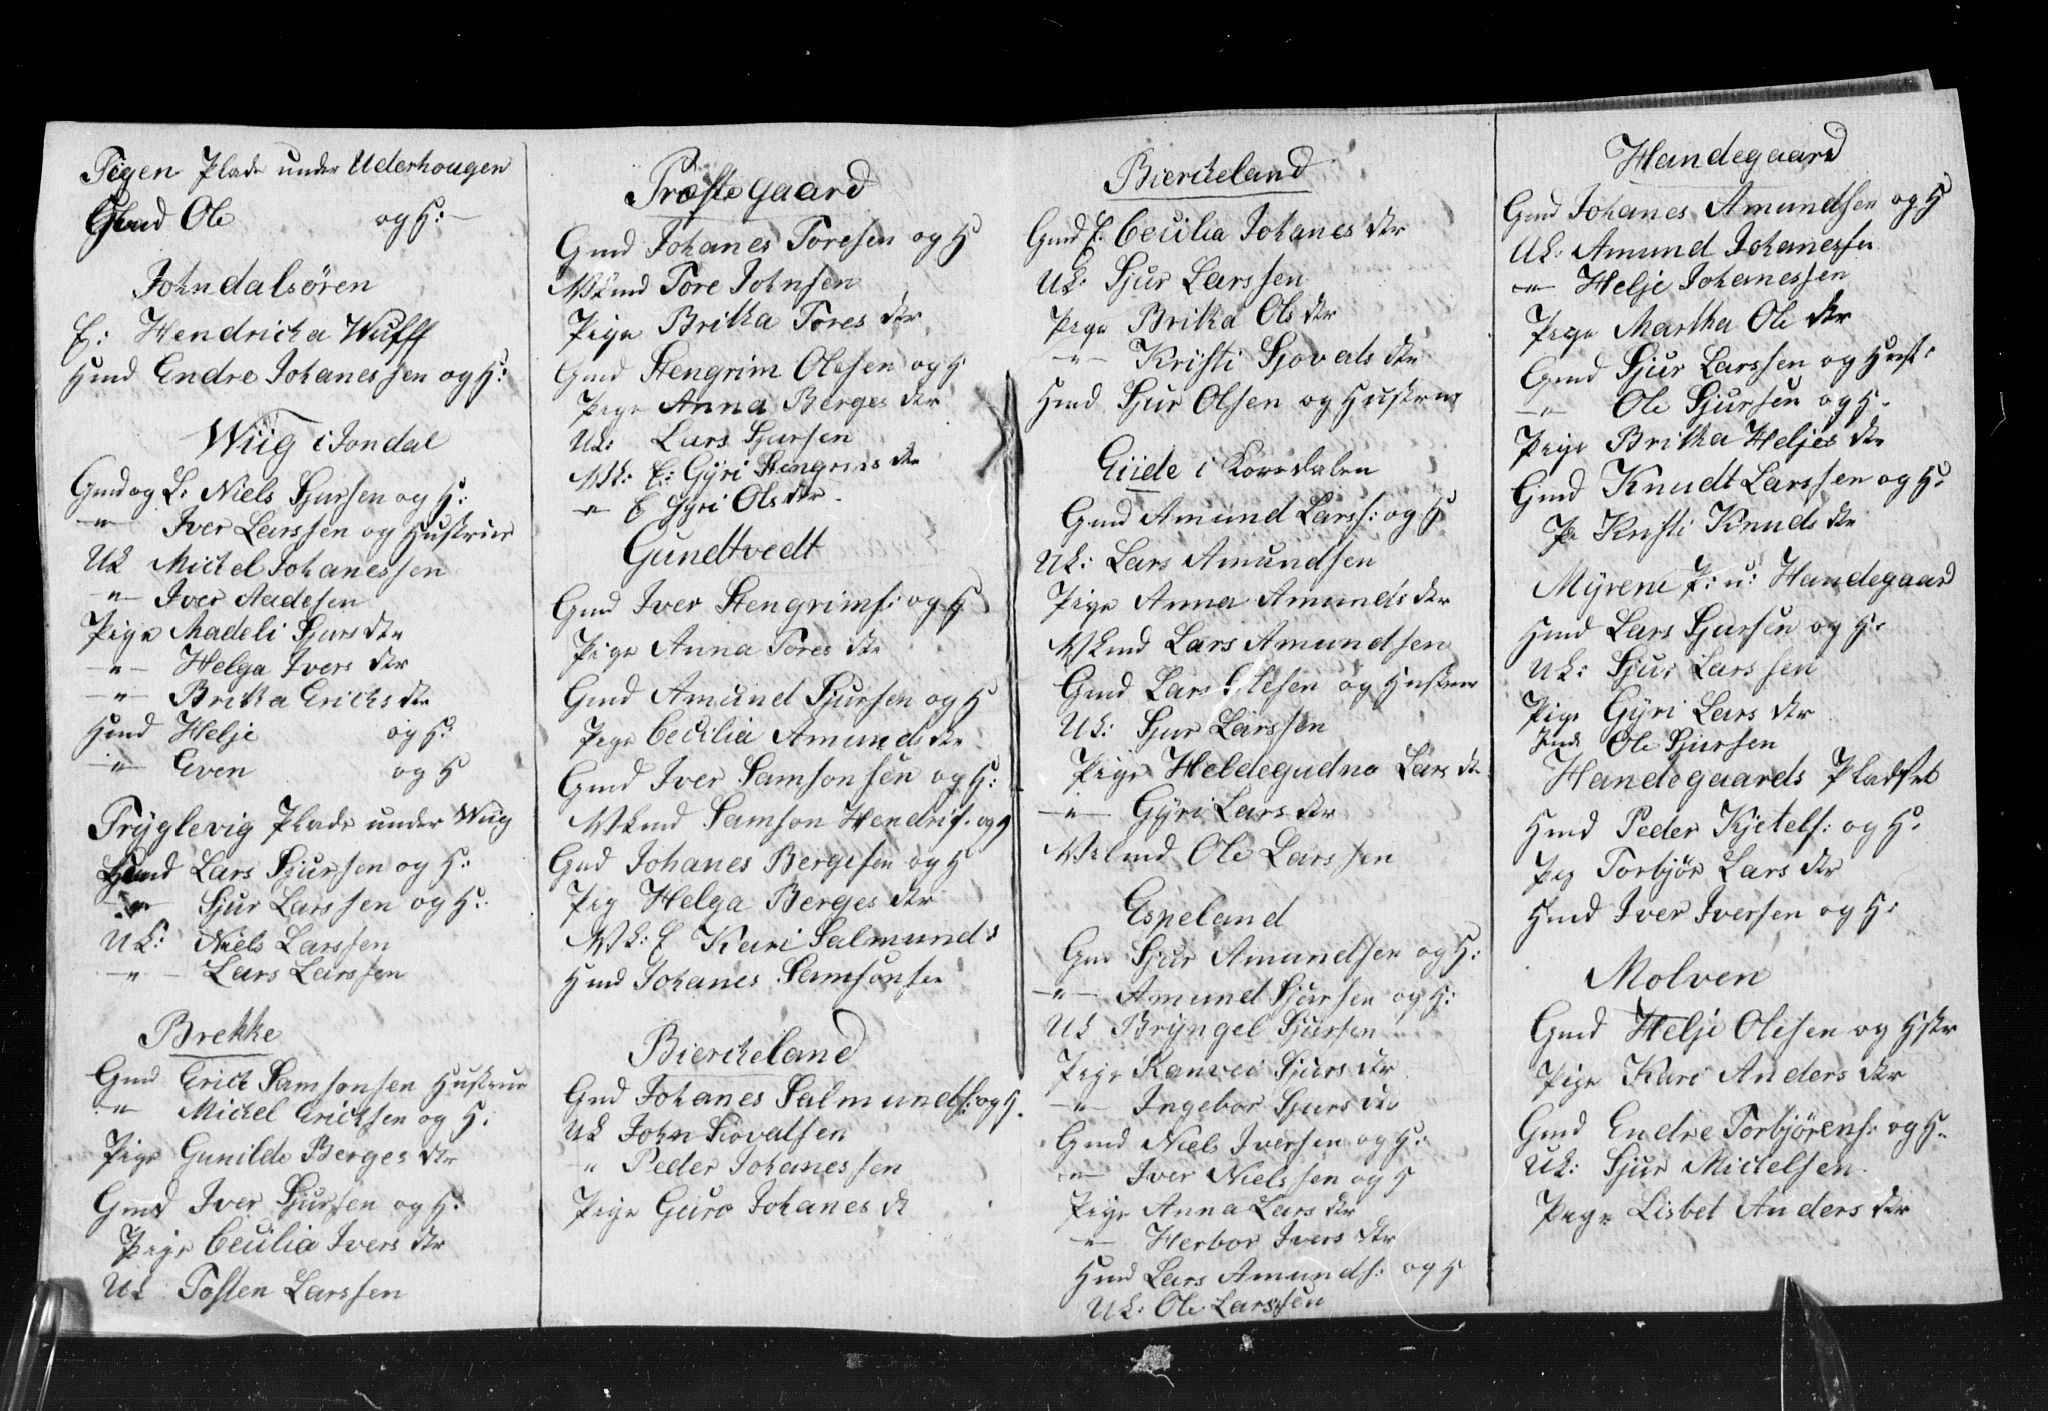 Tigen Plads under Uderhougen
Gmd Ole og H:
Johndalsören
E: Hendricha Wulff
Hmd Endre Johanessen og H:
Wiig i Jondal
Gmd og L. Niels Sjursen og H:
" Iver Larssen og Hustrue
Uk Mickel Johanessen
" Iver Aadesen
Pige Madeli Sjursdtr
" Helga Iversdtr
" Britha Erichsdtr
Hmd Helje og H:
" Even og H
Tryglevig Plads under Wiig
Hmd Lars Sjursen og H:
" Sjur Larssen og H:
Uk: Niels Larssen
" Lars Larssen
Brekke
Gmd Erick Samsonsen Hustrue
" Mickel Ericksen og H:
Pige Gunilde Bergesdtr
Gmd Iver Sjursen og H:
Pige Cecilia Iversdtr
Uk Tosten Larssen
Præstegaard
Gmd Johanes Toresen og H
Nkmd Tore Johnsen
Pige Britha Toresdtr
Gmd Stengrim Olesen og H
Pige Anna Bergesdtr
Uk: Lars Sjursen
Nk: E: Gÿri Stengrimsdtr
" E Gyri Olsdtr
Gundtvedt
Gmd Iver Stengrims: og H
Pige Anna Toresdtr
Gmd Amund Sjursen og H
Pige Cecilia Amundsdtr
Gmd Iver Samsonsen og H:
Nkmd Samson Hendrits. og H
Gmd Johanes Bergesen og H
Pig Helga Bergesdtr
Nk: E Kari Salmunds
Hmd Johanes Samsonsen
Bierckeland
Gmd Johanes Salmunds: og H.
Uk John Siovatsen
" Peder Johanessen
Pige Guro Johanesd
Bierckeland
Gmd E. Cecilia Johanesdtr
Uk: Sjur Larssen
Pige Britha Olsdtr
" Kristi Sjovatsdtr
Hmd Sjur Olsen og Hustrue
Eiide i Korsdalen
Gmd Amund Larss: og H
Uk: Lars Amundsen
Pige Anna Amundsdtr
Nkmd Lars Amundsen
Gmd Lars Olesen og Hustrue
Uk: Sjur Larssen
Pige Heldegudna Larsdtr
" Gÿri Larsdtr
Nkmd Ole Larssen
Espeland
Gm Sjur Amundsen og H:
" Amund Sjursen og H:
Uk Brÿngel Sjursen
Pige Ranvei Sjursdtr
" Ingebor Sjursdtr
Gmd Niels Iversen og H:
" Iver Nielssen og H
Pige Anna Larsdtr
" Herbor Iversdtr
Hmd Lars Amunds: og H
Uk: Ole Larssen
Handegaard
Gmd Johanes Amundsen og H
Uk: Amund Johanessen
" Helje Johanessen
Pige Martha Oledtr
Gmd Sjur Larssen og Hust:
" Ole Sjursen og H.
Pige Britha Heljesdtr
Gmd Knudt Larssen og H:
Pe Kristi Knudsdtr
Mÿrene P: u: Handegaard
Hmd Lars Sjursen og H:
Uk: Sjur Larssen
Pige Gÿri Larsdtr
Ole Sjursen
Handegaards Pladset
Hmd Peder Kjetels: og H.
Pig Torbjør Larsdtr
Hmd Iver Iversen og H:
Molven
Gmd Helje Olesen og Hstr
Pige Kari Andersdtr
Gmd Endre Torbjørens: og H.
Uk: Sjur Mickelsen
Pige Lisbet Andersdtr